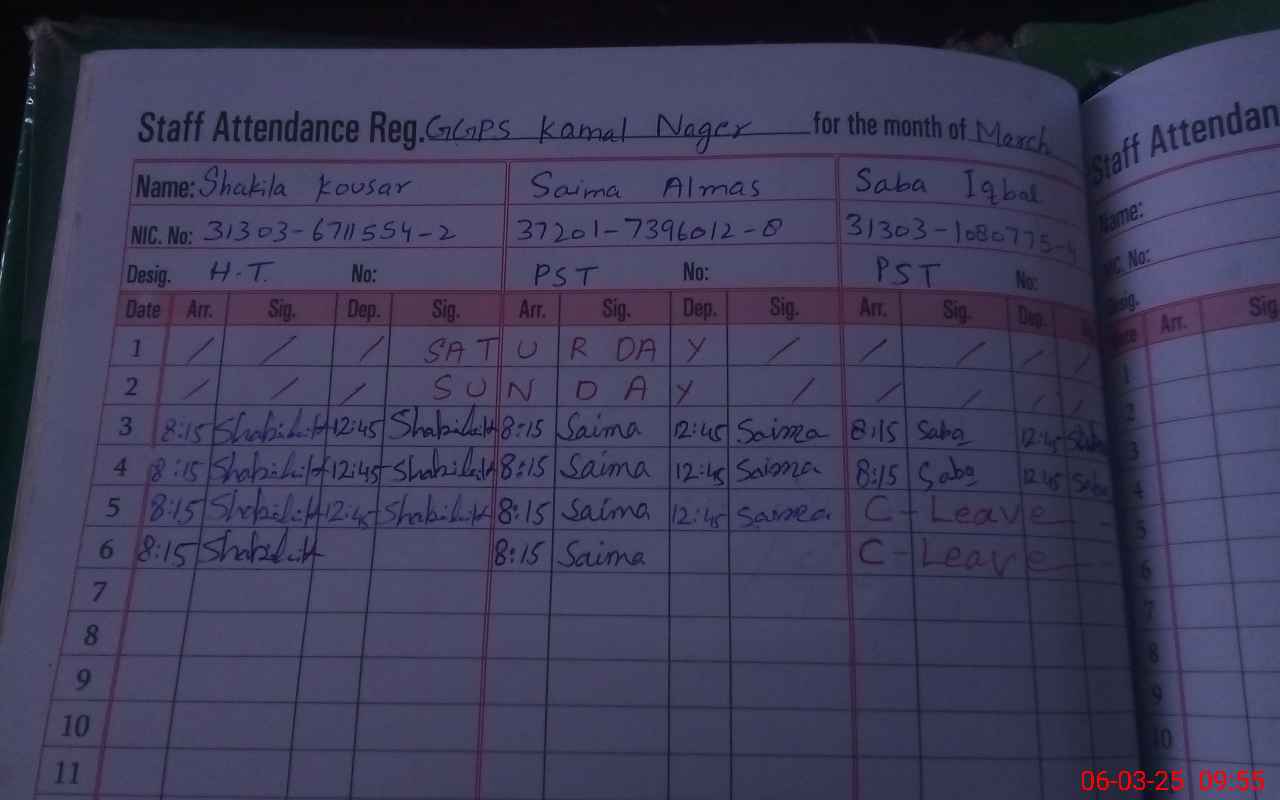 Staff Attendance Reg. GGPS Kamal Nager for the month of March
Name: Shakila Kousar Saima Almas Saba Iqbal
NIC. No: 31303-6711554-2 37201-7396012-8 31303-1080775-4
Desig. H.T. No: PST No: PST No:
Date Arr. Sig. Dep. Sig. Arr. Sig. Dep. Sig. Arr. Sig. Dep.
1 / / / SATURDAY / / / / /
2 / / / SUNDAY / / / / /
3 8:15 12:45 8:15 Saima 12:45 Saima 8:15 Saba 12:45 Saba
4 8:15 12:45 8:15 Saima 12:45 Saima 8:15 Saba 12:45 Saba
5 8:15 12:45 8:15 Saima 12:45 Saima C-Leave
6 8:15 8:15 Saima C-Leave
7
8
9
10
11
Staff Attendan
Name:
NIC. No:
Desig.
Arr. Sig
1
2
3
4
5
6
7
8
9
10
06-03-25 09:55